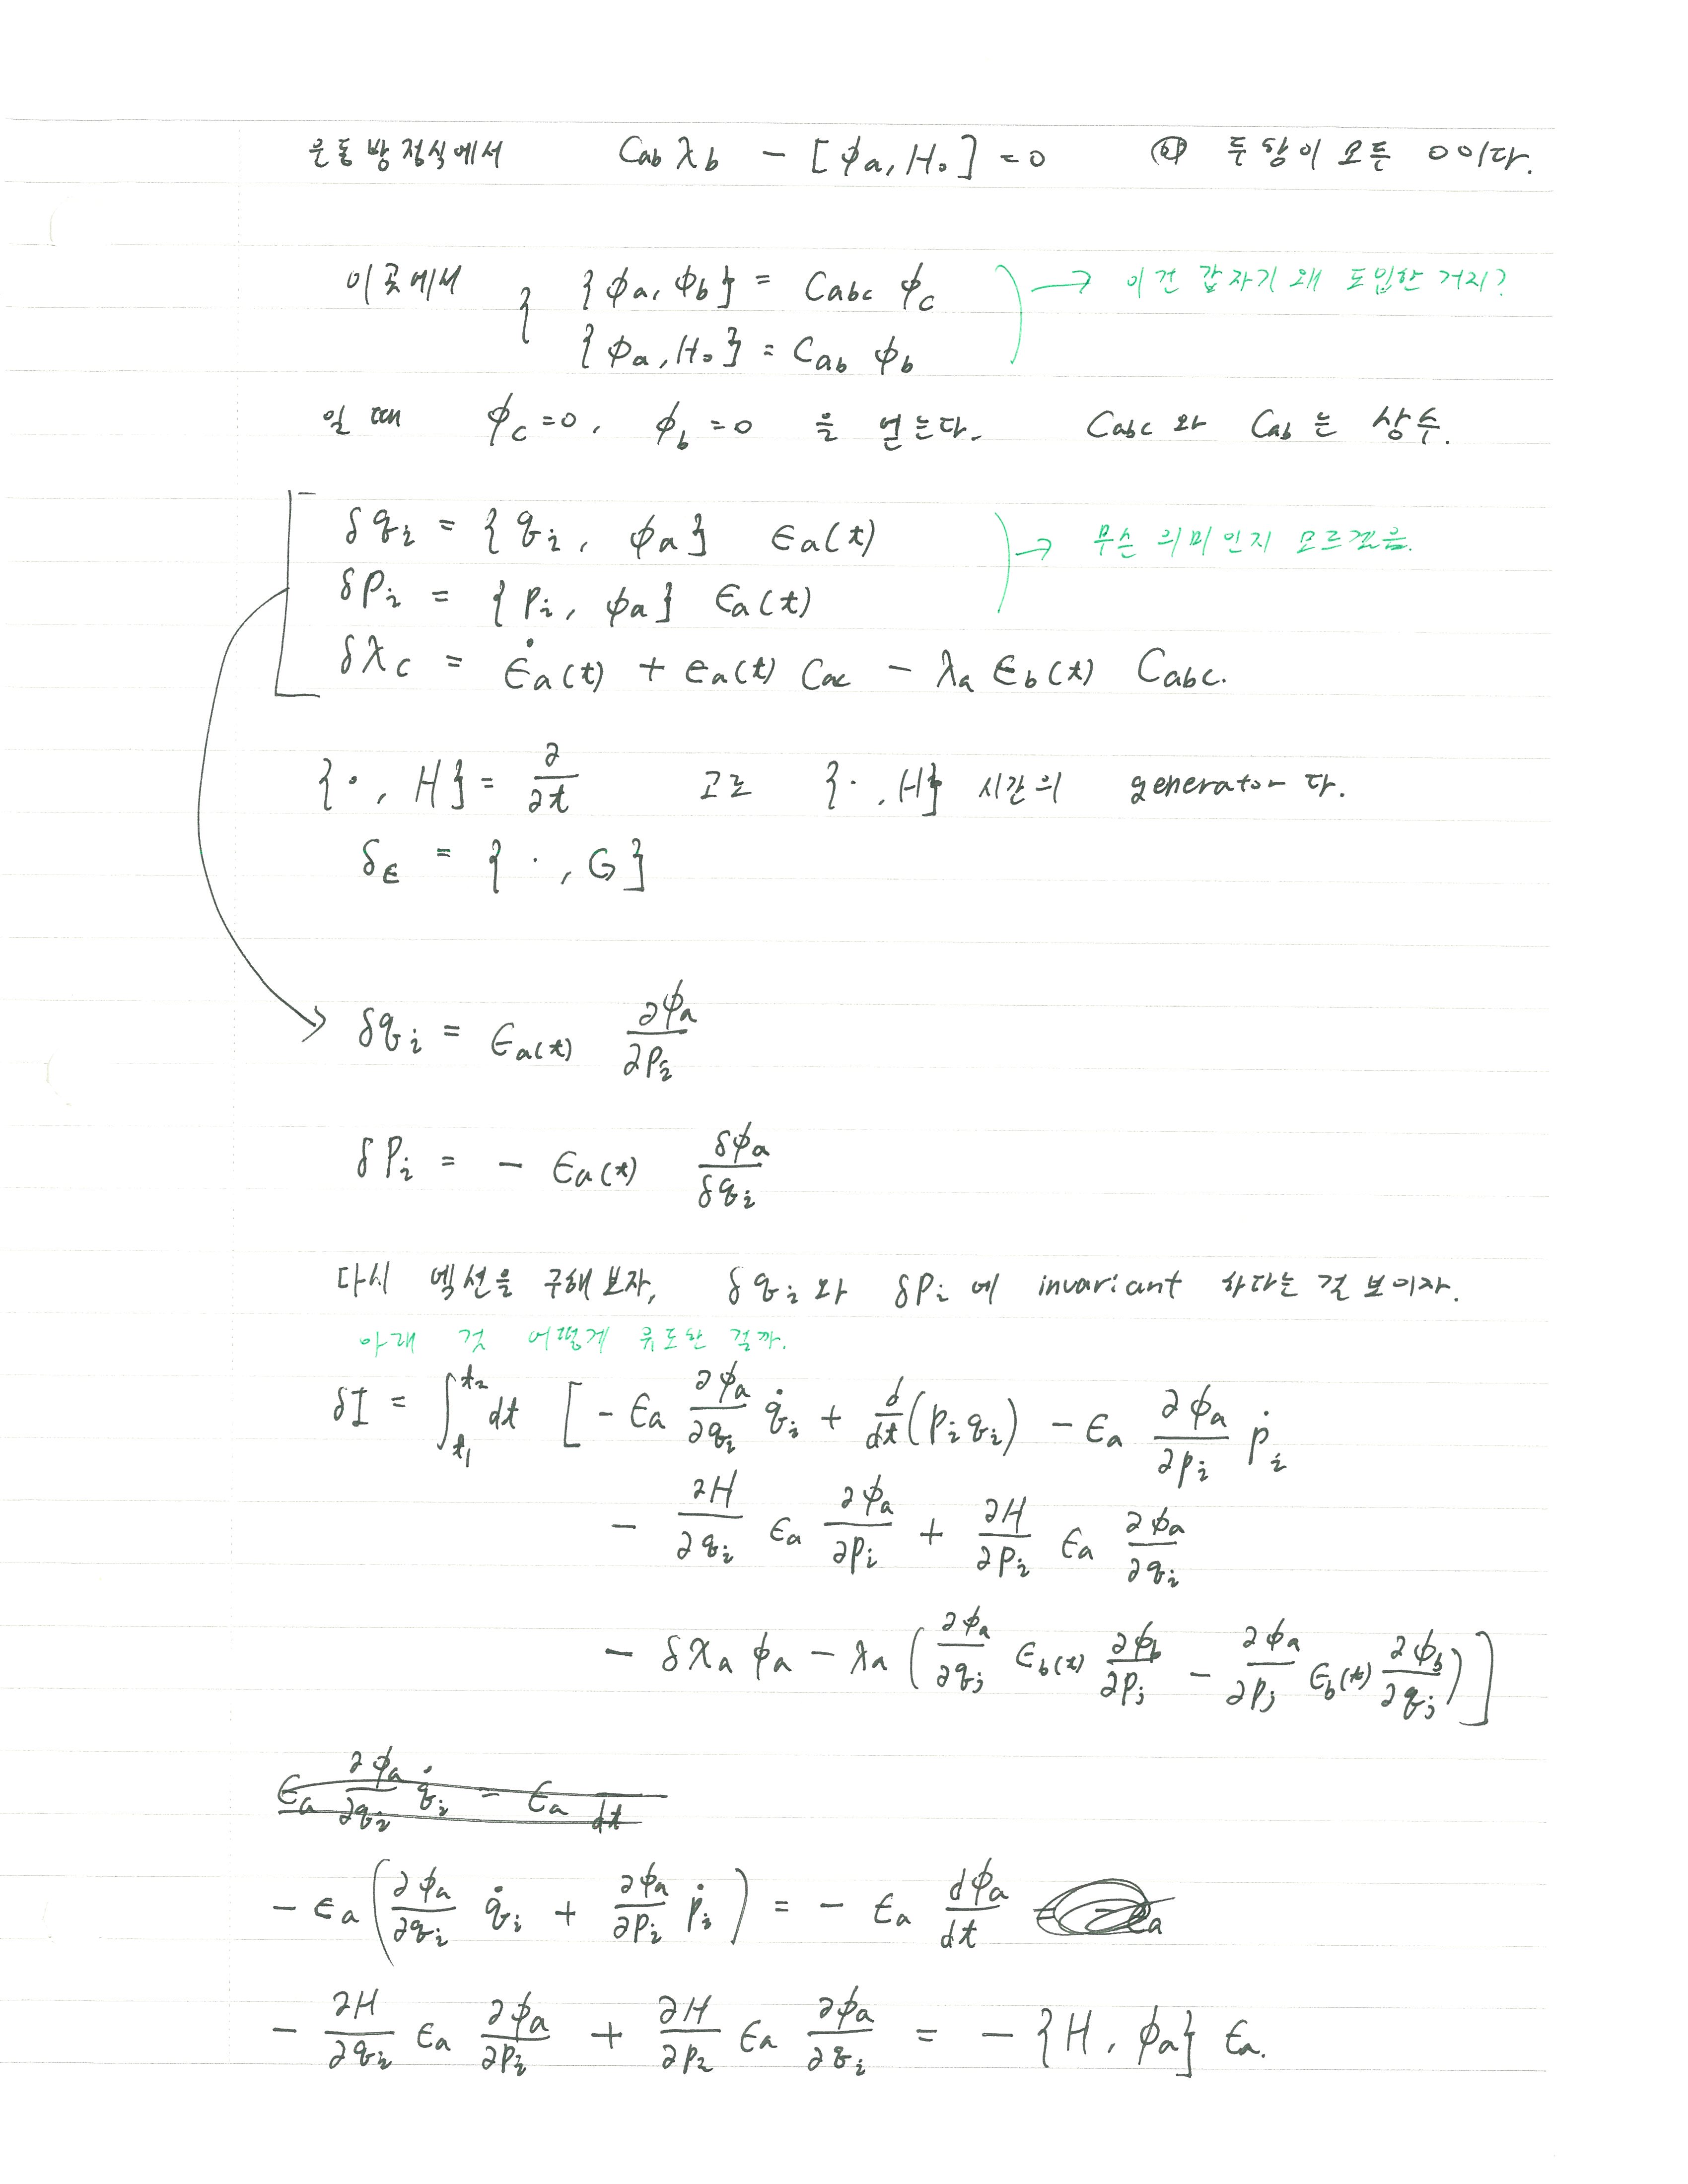 운동방정식에서 Cab λb - [ϕa, H₀] = 0 두 항이 모두 0이다.
이곳에서 { {ϕa, ϕb} = Cabc ϕc → 이건 갑자기 왜 도입한 거지?
{ϕa, H₀} = Cab ϕb
일 때 ϕc = 0, ϕb = 0 을 얻는다. Cabc 와 Cab 는 상수.
δqi = {qi, ϕa} ϵa(t)
δpi = {pi, ϕa} ϵa(t) → 무슨 의미인지 모르겠음.
δλc = ϵ̇a(t) + ϵa(t) Cac - λa ϵb(t) Cabc.
{·, H} = ∂/∂t 고로 {·, H} 시간의 generator다.
δϵ = {·, G}
δqi = ϵa(t) ∂ϕa/∂pi
δpi = - ϵa(t) δϕa/δqi
다시 액션을 구해보자, δqi와 δpi에 invariant 하다는 걸 보이자.
아래 것 어떻게 유도한 걸까.
δI = ∫_{t₁}^{t₂} dt [ - ϵa ∂ϕa/∂qi q̇i + d/dt(pi qi) - ϵa ∂ϕa/∂pi ṗi
- ∂H/∂qi ϵa ∂ϕa/∂pi + ∂H/∂pi ϵa ∂ϕa/∂qi
- δλa ϕa - λa ( ∂ϕa/∂qj ϵb(t) ∂ϕb/∂pj - ∂ϕa/∂pj ϵb(t) ∂ϕb/∂qj ) ]
ϵa ∂ϕa/∂qi q̇i = ϵa /dt
- ϵa ( ∂ϕa/∂qi q̇i + ∂ϕa/∂pi ṗi ) = - ϵa dϕa/dt
- ∂H/∂qi ϵa ∂ϕa/∂pi + ∂H/∂pi ϵa ∂ϕa/∂qi = - {H, ϕa} ϵa.